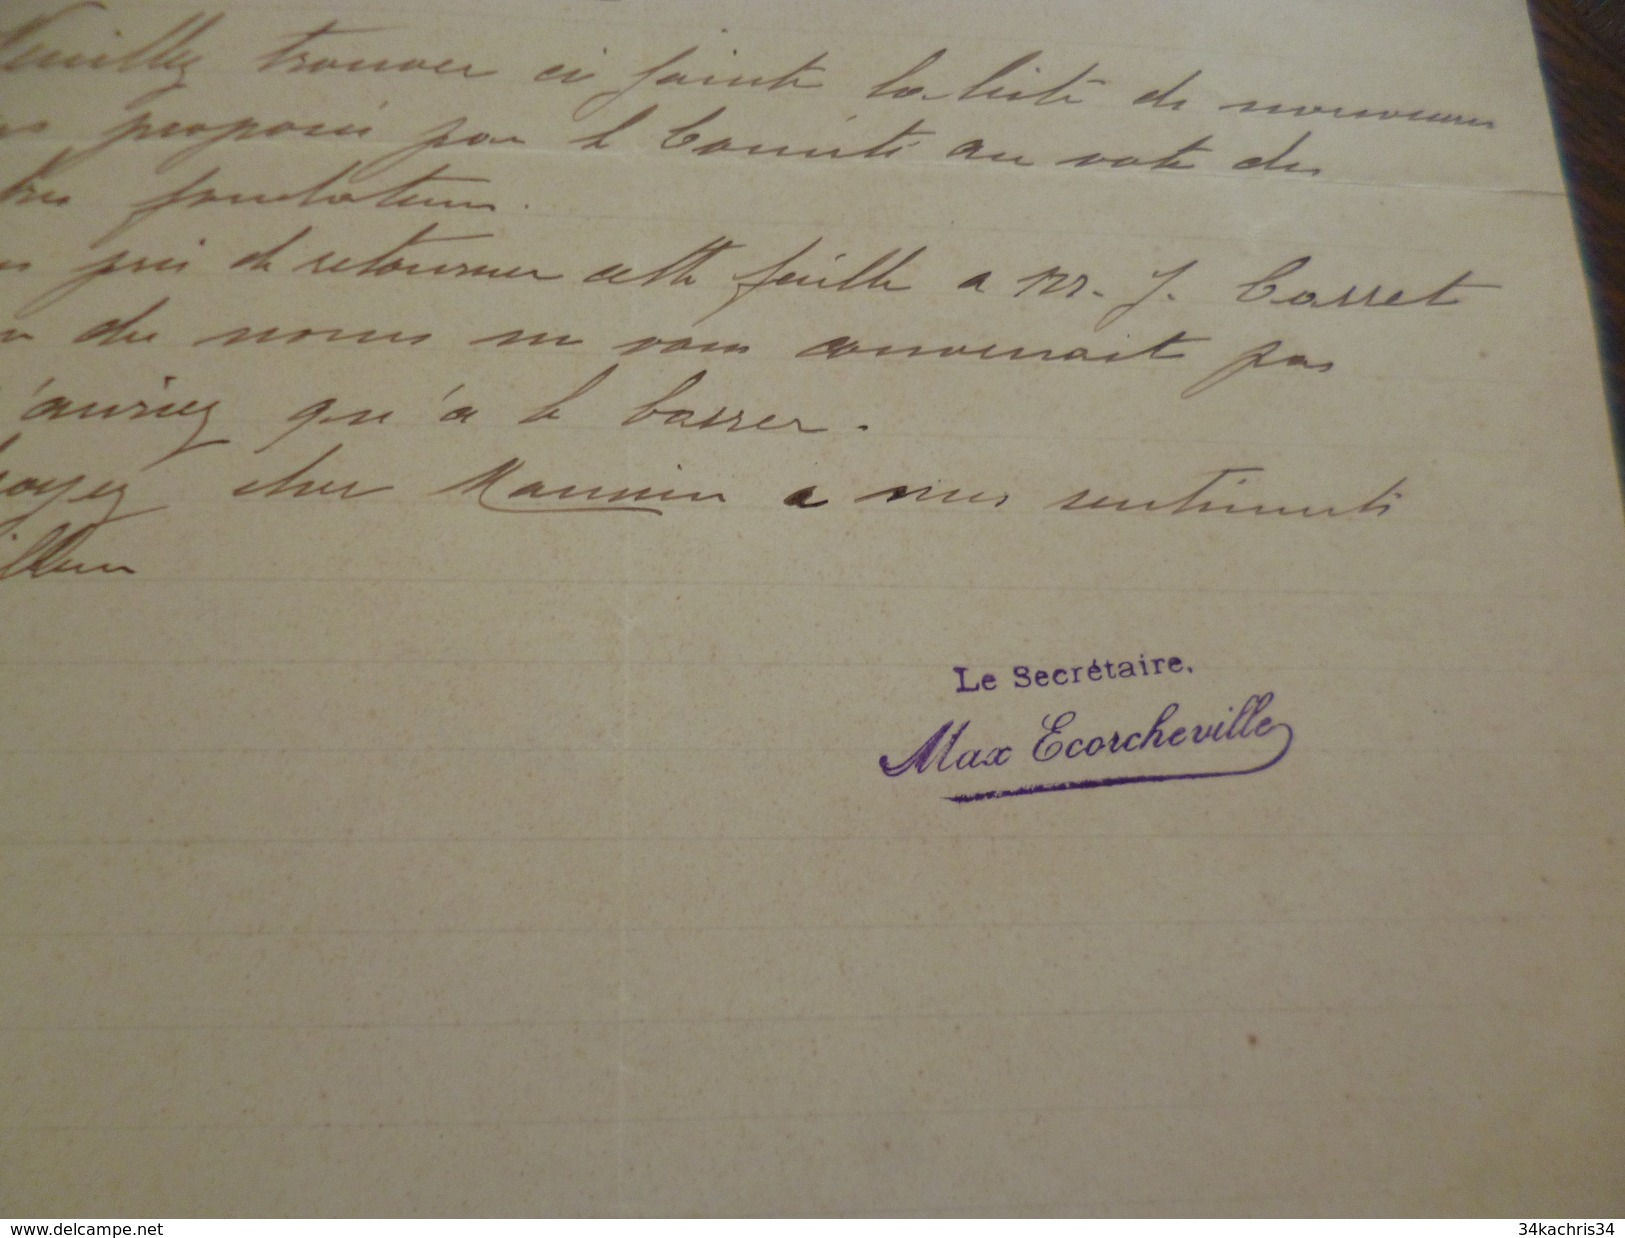 Veuillez trouver ci jointe la liste de nouveaux
proposés par le Comité au vote des
fondateurs.
prié de retourner cette feuille a Mr. J. Cosset
des noms ne vous convenait pas
n'auriez qu'à le barrer.
cher Monsieur a mes sentiments
Le Secrétaire,
Max Ecorcheville
www.delcampe.net
34kachris34